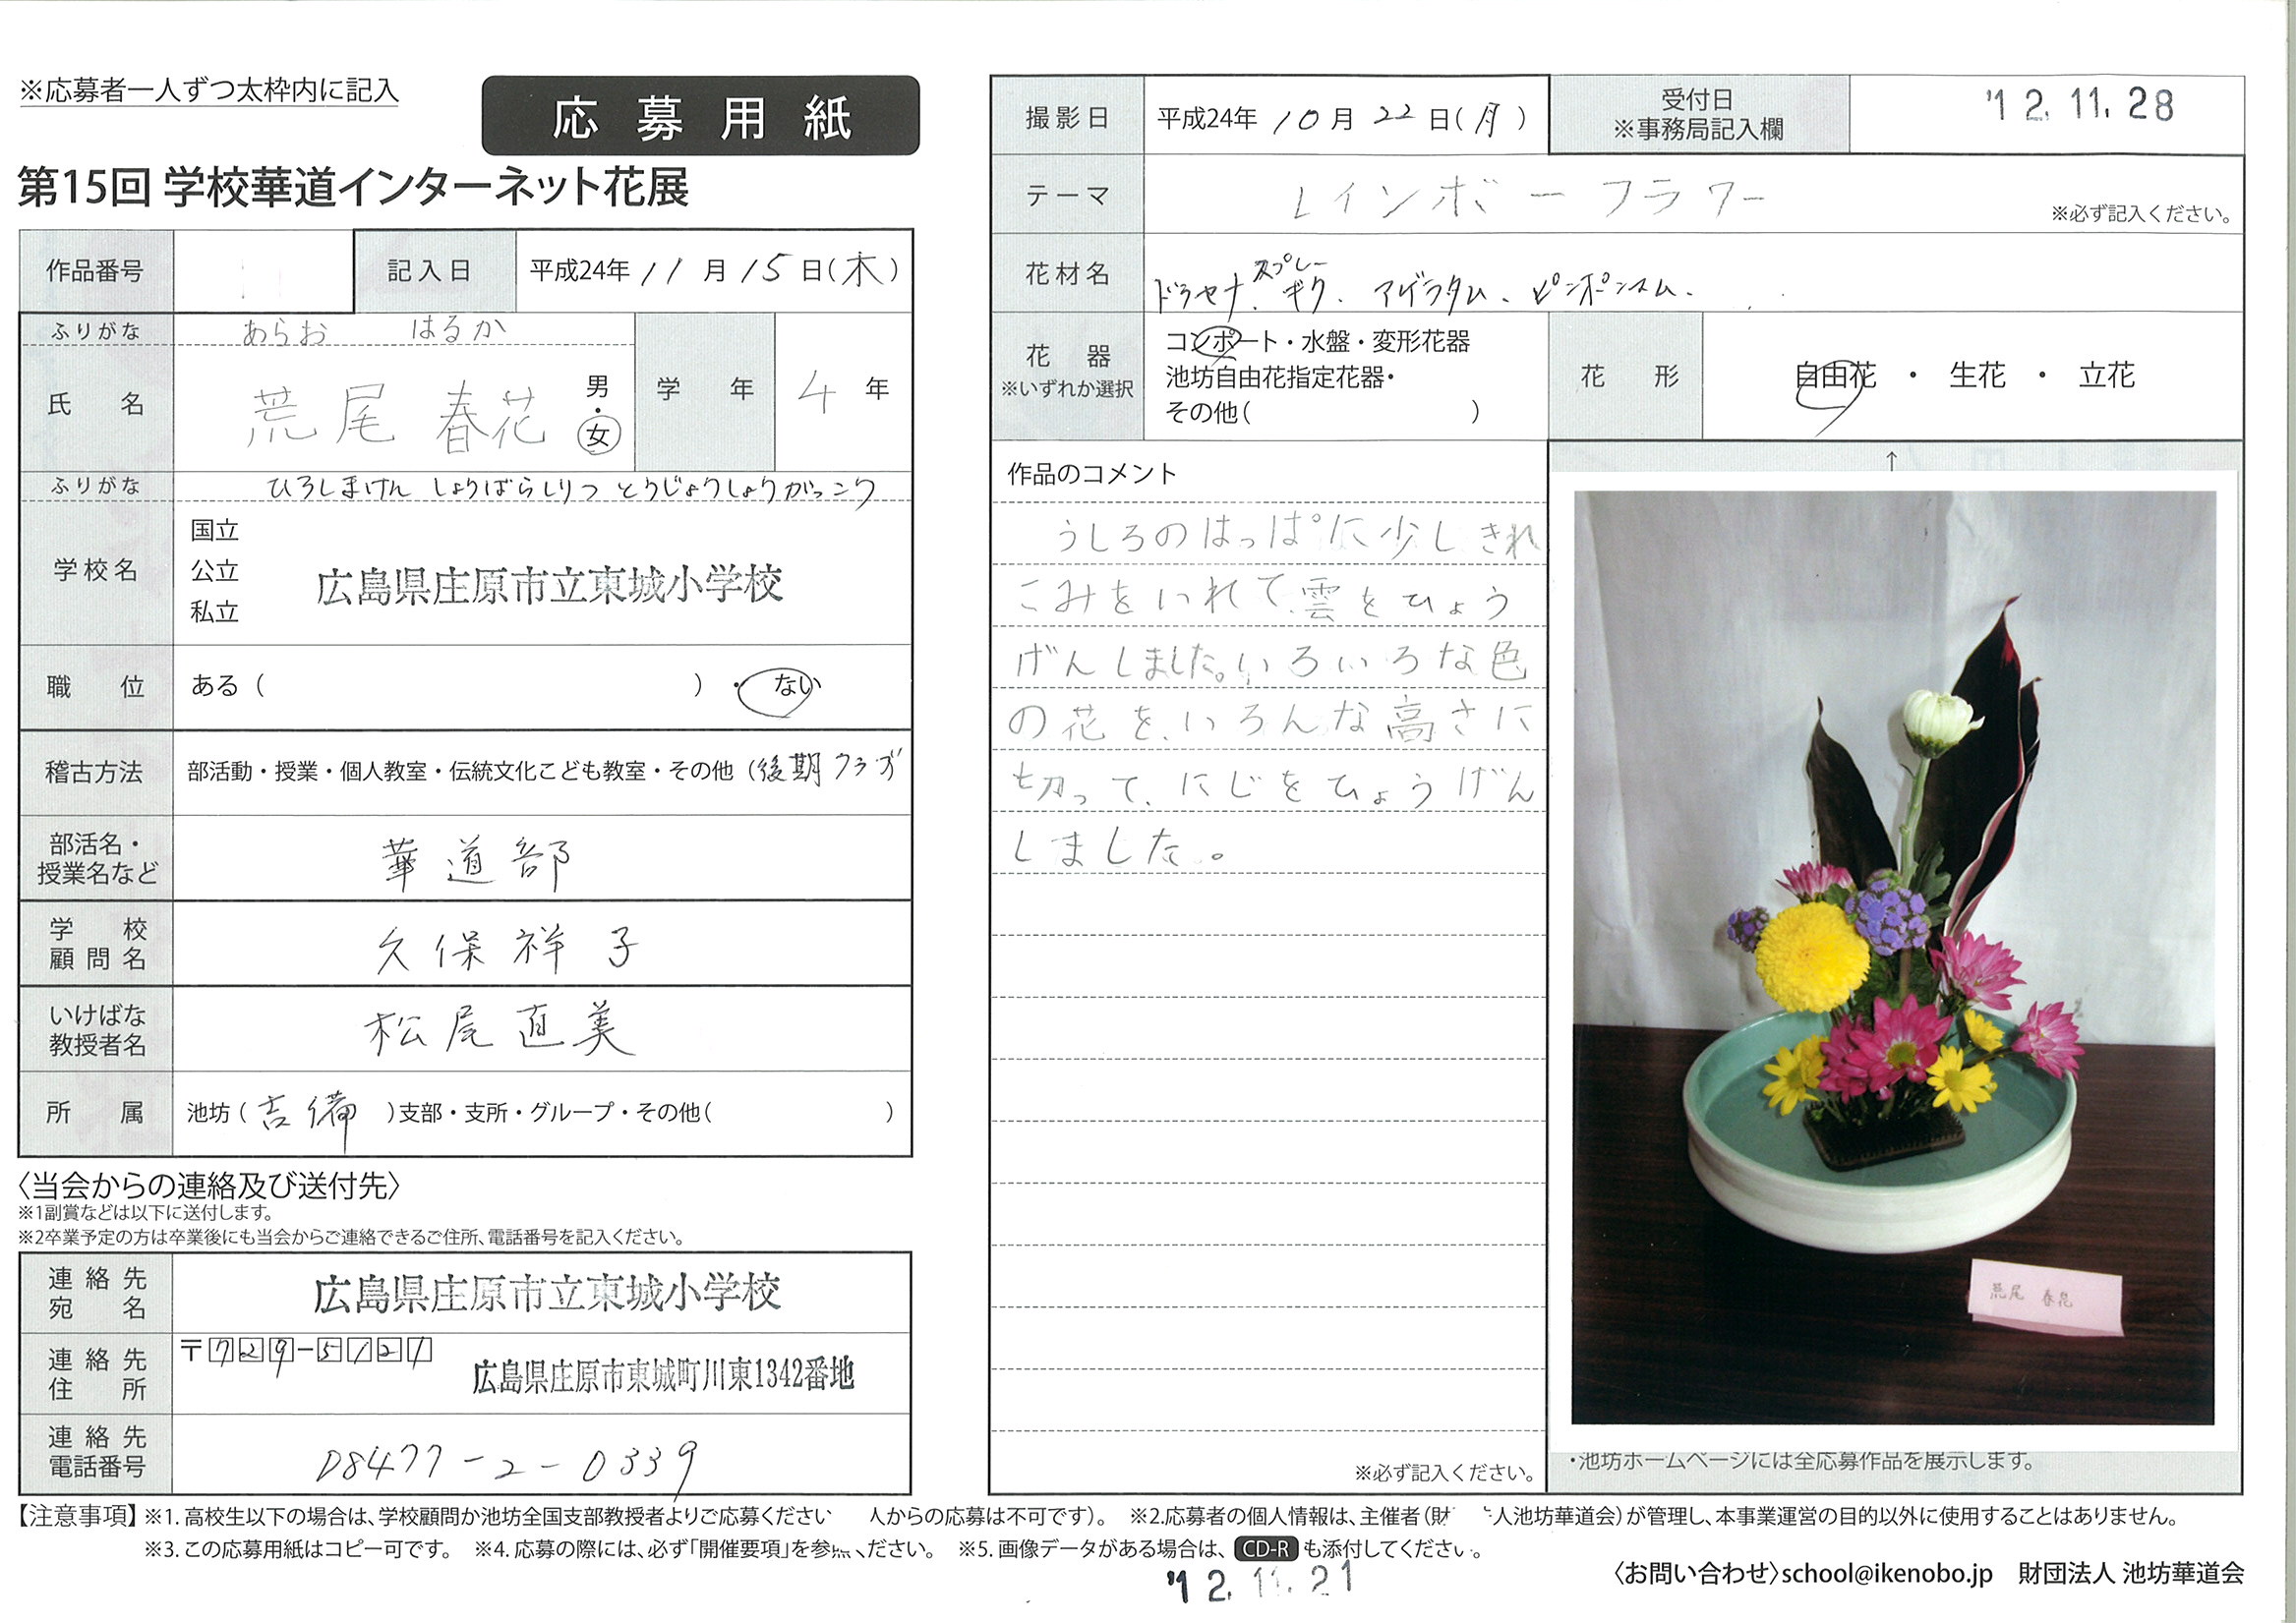 ※応募者一人ずつ太枠内に記入
応募用紙
第15回 学校華道インターネット花展
作品番号
記入日 平成24年 11月 15日(木)
ふりがな あらお はるか
氏名 荒尾 春花 男・女 学年 4年
ふりがな ひろしまけん しょうばらしりつ とうじょうしょうがっこう
学校名 国立 公立 私立 広島県庄原市立東城小学校
職位 ある( )・ない
稽古方法 部活動・授業・個人教室・伝統文化こども教室・その他(後期クラブ
部活名・授業名など 華道部
学校顧問名 久保祥子
いけばな教授者名 松尾直美
所属 池坊(吉備)支部・支所・グループ・その他( )
〈当会からの連絡及び送付先〉
※1副賞などは以下に送付します。
※2卒業予定の方は卒業後にも当会からご連絡できるご住所、電話番号を記入ください。
連絡先宛名 広島県庄原市立東城小学校
連絡先住所 〒729-5121 広島県庄原市東城町川東1342番地
連絡先電話番号 08477-2-0339
撮影日 平成24年 10月 22日(月)
受付日 ※事務局記入欄 '12.11.28
テーマ レインボーフラワー ※必ず記入ください。
花材名 ドラセナ、スプレーギク、アゲラタム、ピンポンマム、
花器 ※いずれか選択 コンポート・水盤・変形花器
池坊自由花指定花器・
その他( )
花形 自由花 ・ 生花 ・ 立花
作品のコメント
うしろのはっぱに少しきれ
こみをいれて、雲をひょう
げんしました。いろいろな色
の花を、いろんな高さに
切って、にじをひょうげん
しました。
※必ず記入ください。
↑
荒尾 春花
・池坊ホームページには全応募作品を展示します。
【注意事項】※1.高校生以下の場合は、学校顧問か池坊全国支部教授者よりご応募ください 人からの応募は不可です)。 ※2.応募者の個人情報は、主催者(財 人池坊華道会)が管理し、本事業運営の目的以外に使用することはありません。
※3.この応募用紙はコピー可です。 ※4.応募の際には、必ず「開催要項」を参 ください。 ※5.画像データがある場合は、CD-Rも添付してください。
'12.11.21
〈お問い合わせ〉school@ikenobo.jp 財団法人 池坊華道会